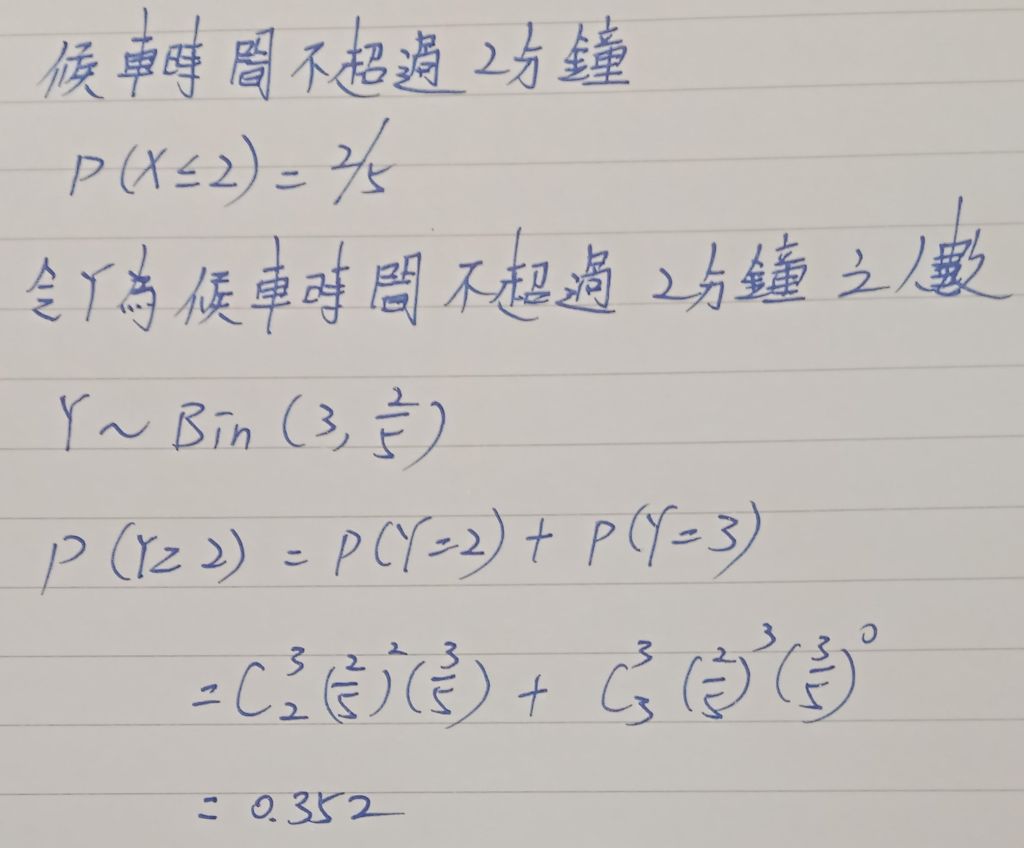 候車時間不超過2分鐘
P(X≤2) = 2/5
令Y為候車時間不超過2分鐘之人數
Y ~ Bin (3, 2/5)
P(Y≥2) = P(Y=2) + P(Y=3)
= C³₂ (2/5)² (3/5) + C³₃ (2/5)³ (3/5)⁰
= 0.352